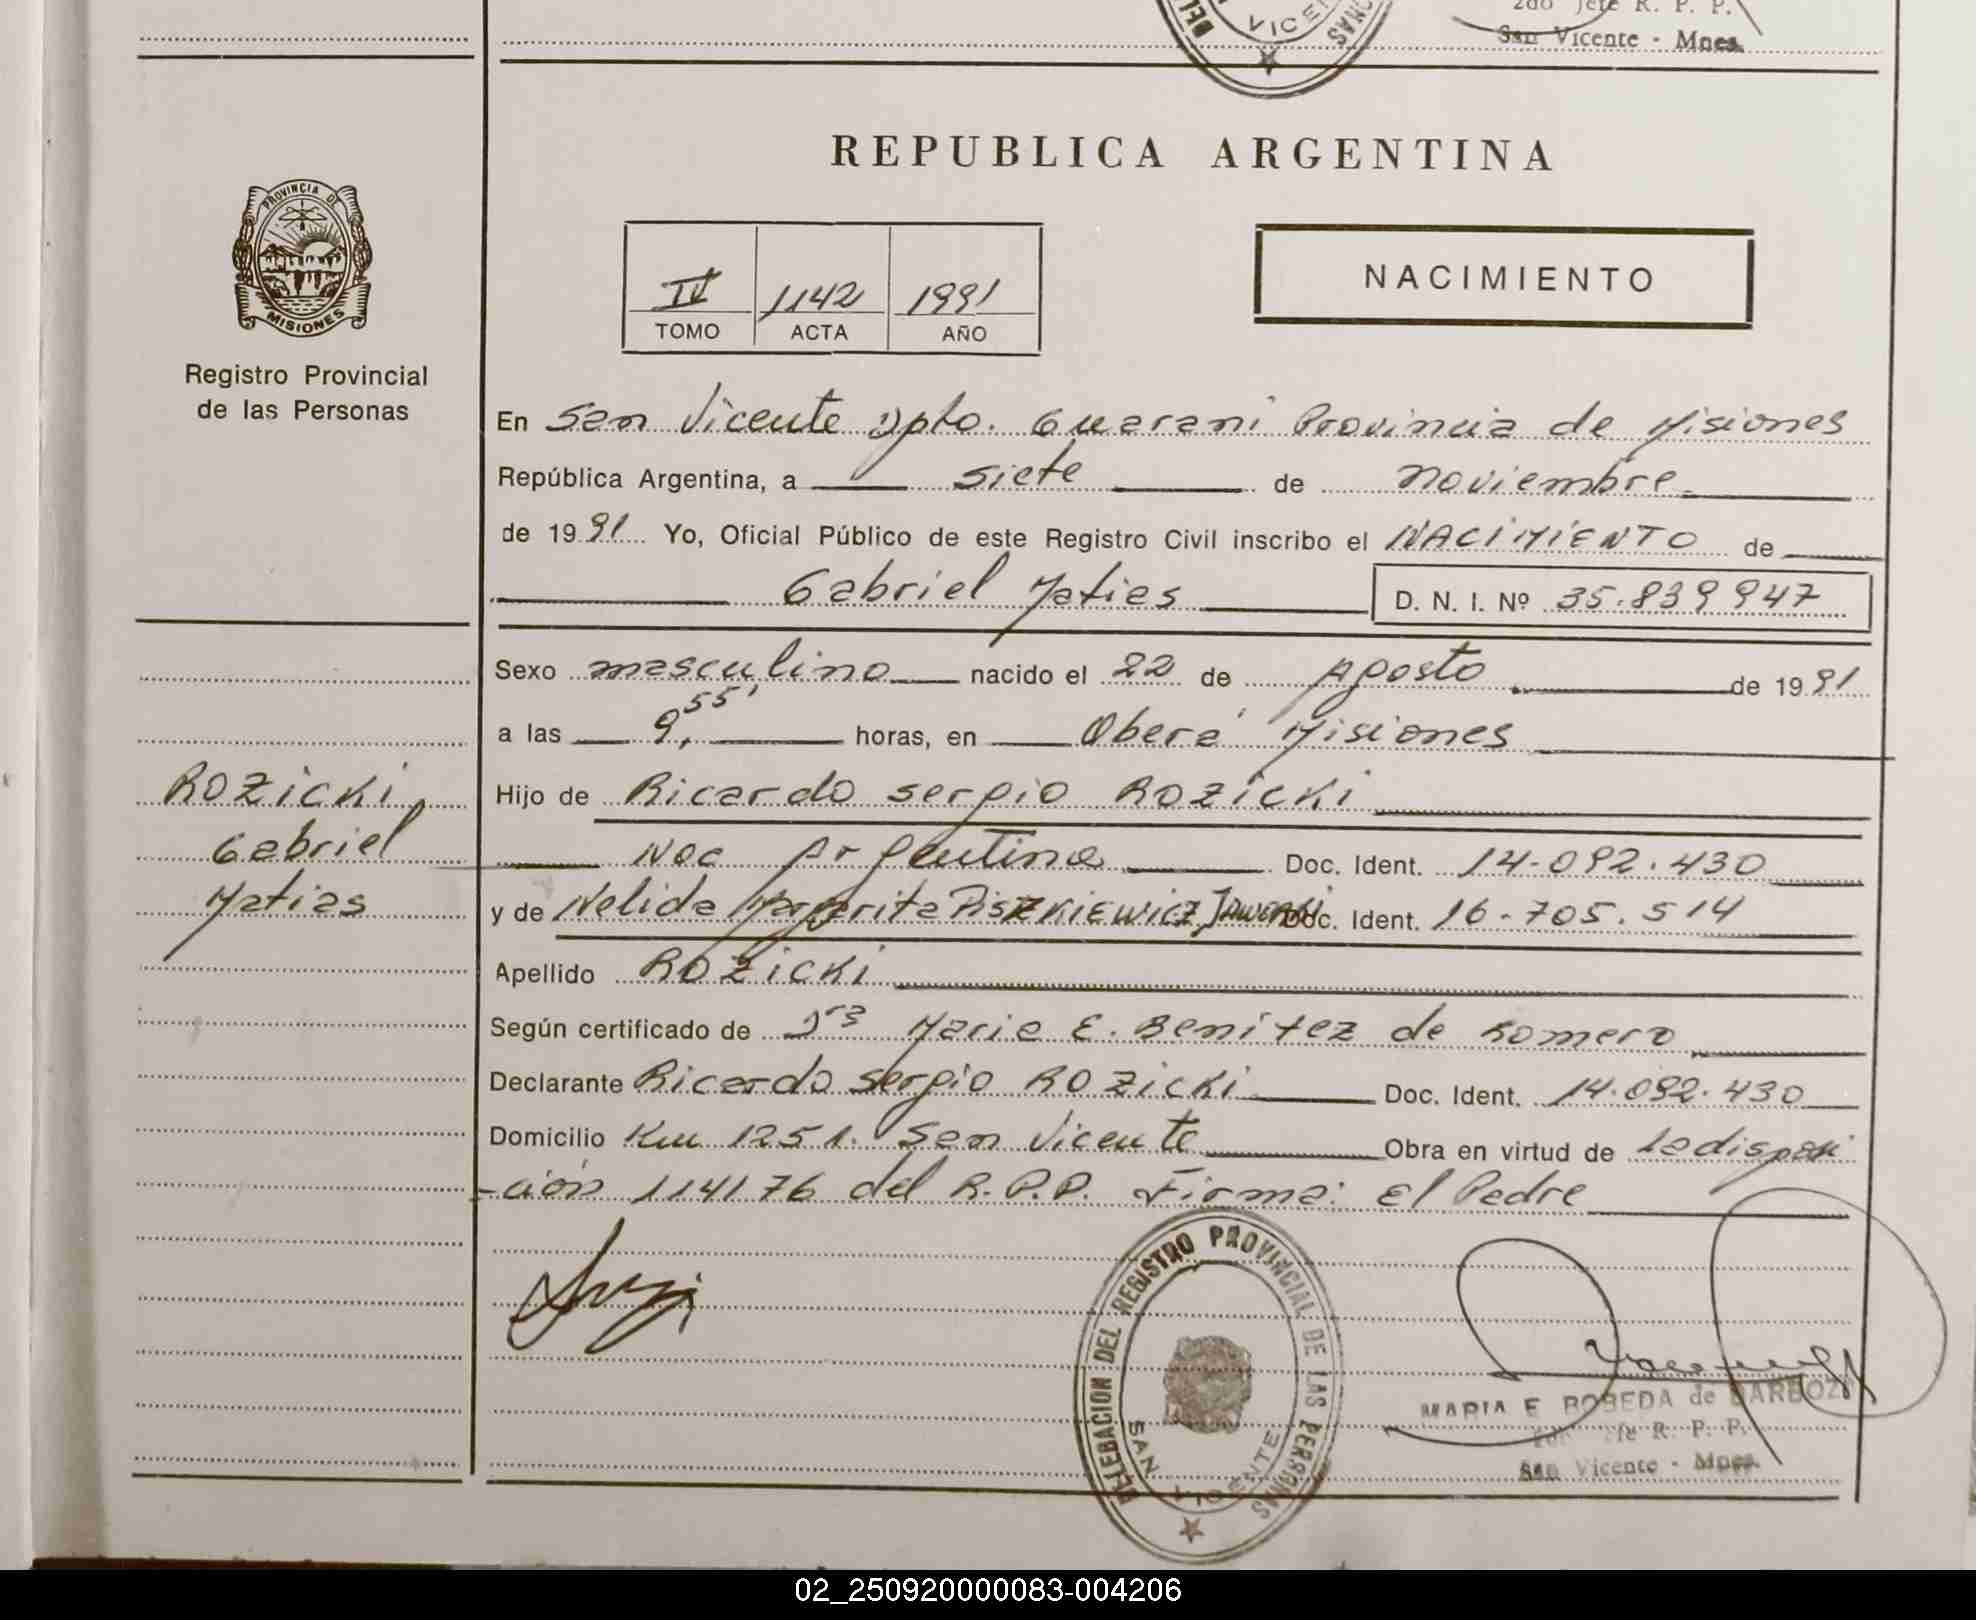 2do Jefe R. P. P.
San Vicente - Mnes.
REPUBLICA ARGENTINA
PROVINCIA DE
MISIONES
Registro Provincial
de las Personas
IV 1142 1991
TOMO ACTA AÑO
NACIMIENTO
En San Vicente Dpto. Guarani Provincia de Misiones
República Argentina, a siete de noviembre
de 1991 Yo, Oficial Público de este Registro Civil inscribo el NACIMIENTO de
Gabriel Matias D. N. I. Nº 35.839947
Sexo masculino nacido el 22 de Agosto de 1991
a las 9,55' horas, en Oberá Misiones
Hijo de Ricardo Sergio ROZICKI
Nac Argentina Doc. Ident. 14.092.430
y de Nelida Margarita PISZKIEWICZ JAWORSKI Doc. Ident. 16.705.514
Apellido ROZICKI
Según certificado de Dra Maria E. Benitez de Romero
Declarante Ricardo Sergio ROZICKI Doc. Ident. 14.092.430
Domicilio Km 1251. San Vicente Obra en virtud de La disposi
-ción 114176 del R.P.P. Firma: El Padre
ROZICKI,
Gabriel
Matias
DELEGACION DEL REGISTRO PROVINCIAL DE LAS PERSONAS
SAN VICENTE
MARIA E BOBEDA de BARBOZA
2do Jefe R. P. P.
San Vicente - Mnes.
02_250920000083-004206